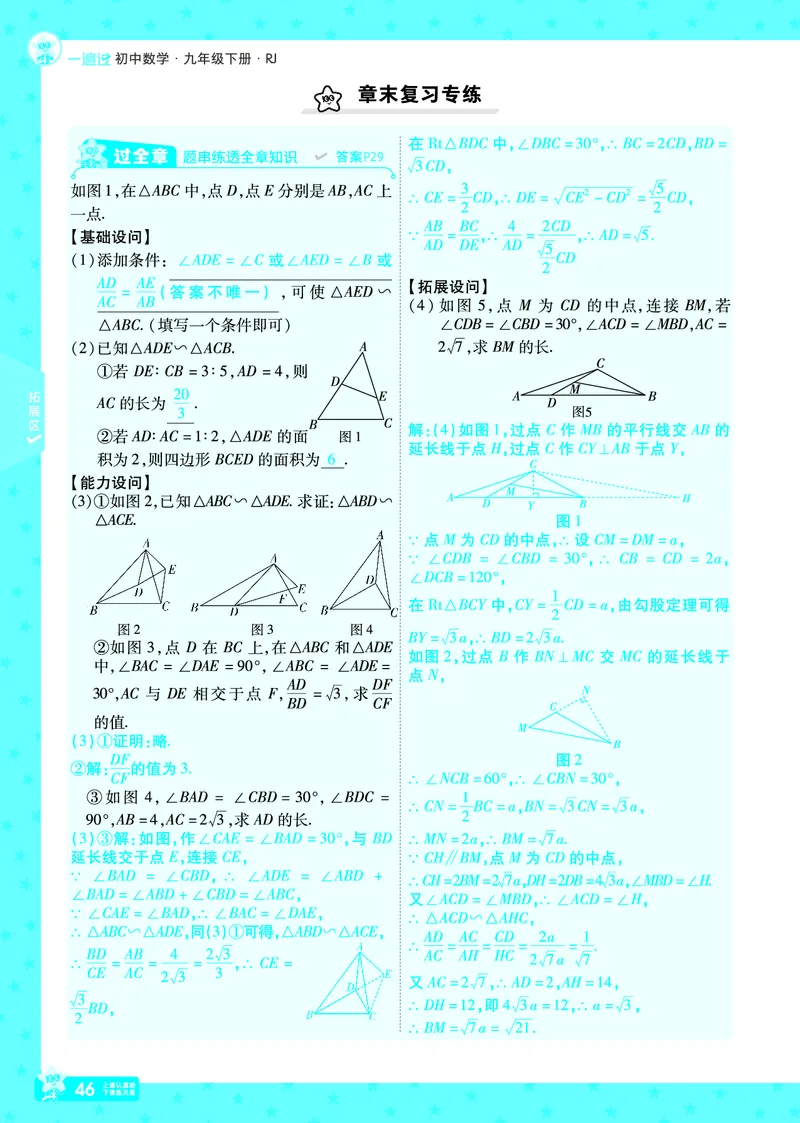 一遍过 初中数学·九年级下册·RJ
章末复习专练
过全章 题串练透全章知识 答案P29
如图1,在△ABC中,点D,点E分别是AB,AC上
一点.
【基础设问】
(1)添加条件: ∠ADE=∠C或∠AED=∠B或
AD/AC=AE/AB(答案不唯一),可使△AED∽
△ABC.(填写一个条件即可)
(2)已知△ADE∽△ACB.
①若DE∶CB=3∶5,AD=4,则
AC的长为 20/3 .
②若AD∶AC=1∶2,△ADE的面
积为2,则四边形BCED的面积为 6 .
A
D
E
B
C
图1
【能力设问】
(3)①如图2,已知△ABC∽△ADE.求证:△ABD∽
△ACE.
A
E
D
B
C
图2
A
E
F
B
D
C
图3
A
D
B
C
图4
②如图3,点D在BC上,在△ABC和△ADE
中,∠BAC=∠DAE=90°,∠ABC=∠ADE=
30°,AC与DE相交于点F,AD/BD=√3,求DF/CF
的值.
(3)①证明:略.
②解:DF/CF的值为3.
③如图4,∠BAD=∠CBD=30°,∠BDC=
90°,AB=4,AC=2√3,求AD的长.
(3)③解:如图,作∠CAE=∠BAD=30°,与BD
延长线交于点E,连接CE,
∵∠BAD=∠CBD,∴∠ADE=∠ABD+
∠BAD=∠ABD+∠CBD=∠ABC,
∵∠CAE=∠BAD,∴∠BAC=∠DAE,
∴△ABC∽△ADE,同(3)①可得,△ABD∽△ACE,
∴BD/CE=AB/AC=4/2√3=2√3/3,∴CE=
√3/2BD,
A
E
D
B
C
在Rt△BDC中,∠DBC=30°,∴BC=2CD,BD=
√3CD,
∴CE=3/2CD,∴DE=√CE²-CD²=√5/2CD,
∵AB/AD=BC/DE,∴4/AD=2CD/√5/2CD,∴AD=√5.
【拓展设问】
(4)如图5,点M为CD的中点,连接BM,若
∠CDB=∠CBD=30°,∠ACD=∠MBD,AC=
2√7,求BM的长.
C
A
M
B
D
图5
解:(4)如图1,过点C作MB的平行线交AB的
延长线于点H,过点C作CY⊥AB于点Y,
C
M
A
D
Y
B
H
图1
∵点M为CD的中点,∴设CM=DM=a,
∵∠CDB=∠CBD=30°,∴CB=CD=2a,
∠DCB=120°,
在Rt△BCY中,CY=1/2CD=a,由勾股定理可得
BY=√3a,∴BD=2√3a.
如图2,过点B作BN⊥MC交MC的延长线于
点N,
N
C
M
B
图2
∴∠NCB=60°,∴∠CBN=30°,
∴CN=1/2BC=a,BN=√3CN=√3a,
∴MN=2a,∴BM=√7a.
∵CH∥BM,点M为CD的中点,
∴CH=2BM=2√7a,DH=2DB=4√3a,∠MBD=∠H.
又∠ACD=∠MBD,∴∠ACD=∠H,
∴△ACD∽△AHC,
∴AD/AC=AC/AH=CD/HC=2a/2√7a=1/√7.
又AC=2√7,∴AD=2,AH=14,
∴DH=12,即4√3a=12,∴a=√3,
∴BM=√7a=√21.
拓展区
46